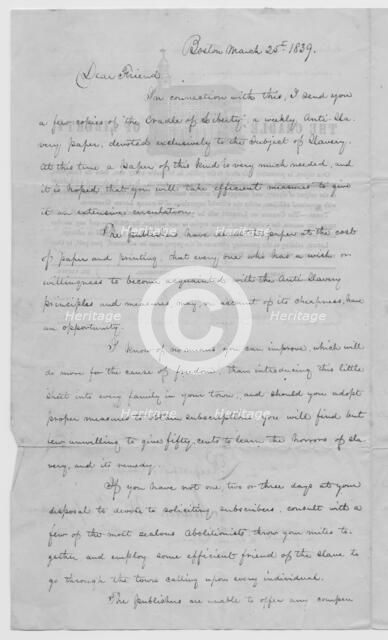 Boston March 25th 1839.
Dear Friend
In connection with this, I send you
a few copies of the "Cradle of Liberty", a weekly Anti Sla-
very paper, devoted exclusively to the subject of Slavery.
At this time a paper of this kind is very much needed, and
it is hoped that you will take efficient measures to give
it an extensive circulation.
The publishers have set this paper at the cost
of paper and printing, that every one who has a wish or
willingness to become acquainted with the Anti Slavery
principles and measures may, on account of its cheapness, have
an opportunity.
I know of no means you can improve, which will
do more for the cause of freedom, than introducing this little
sheet into every family in your town, and should you adopt
proper measures to obtain subscriptions you will find but
few unwilling to give fifty cents to learn the horrors of sla
very, and its remedy.
If you have not one two or three days at your
disposal to devote to soliciting subscribers, consult with a
few of the most zealous Abolitionists, throw your mites to-
gether and employ some efficient friend of the slave to
go through the town calling upon every individual.
The publishers are unable to offer any compen
Heritage Heritage
Heritage Heritage
Heritage Heritage
THE CRADLE OF LIBERTY